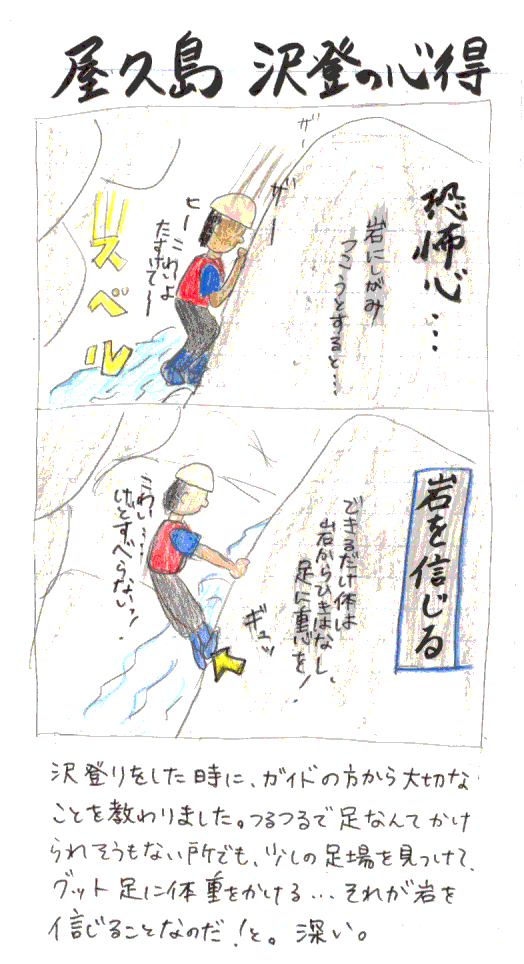 屋久島 沢登の心得
恐怖心…
岩にしがみ
つこうとすると…
ザー
ザー
ヒーこわいよ
たすけて〜
スベル
岩を信じる
できるだけ体は
岩からひきはなし、
足に重心を!
ギュッ
こわい…
けどすべらないっ!
沢登りをした時に、ガイドの方から大切な
ことを教わりました。つるつるで足なんてかけ
られそうもない所でも、少しの足場を見つけて、
グット足に体重をかける…それが岩を
信じることなのだ!と。深い。